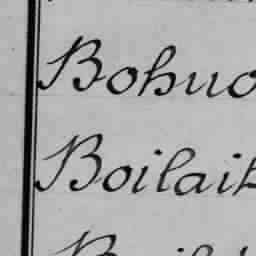 Bohuo
Boilait